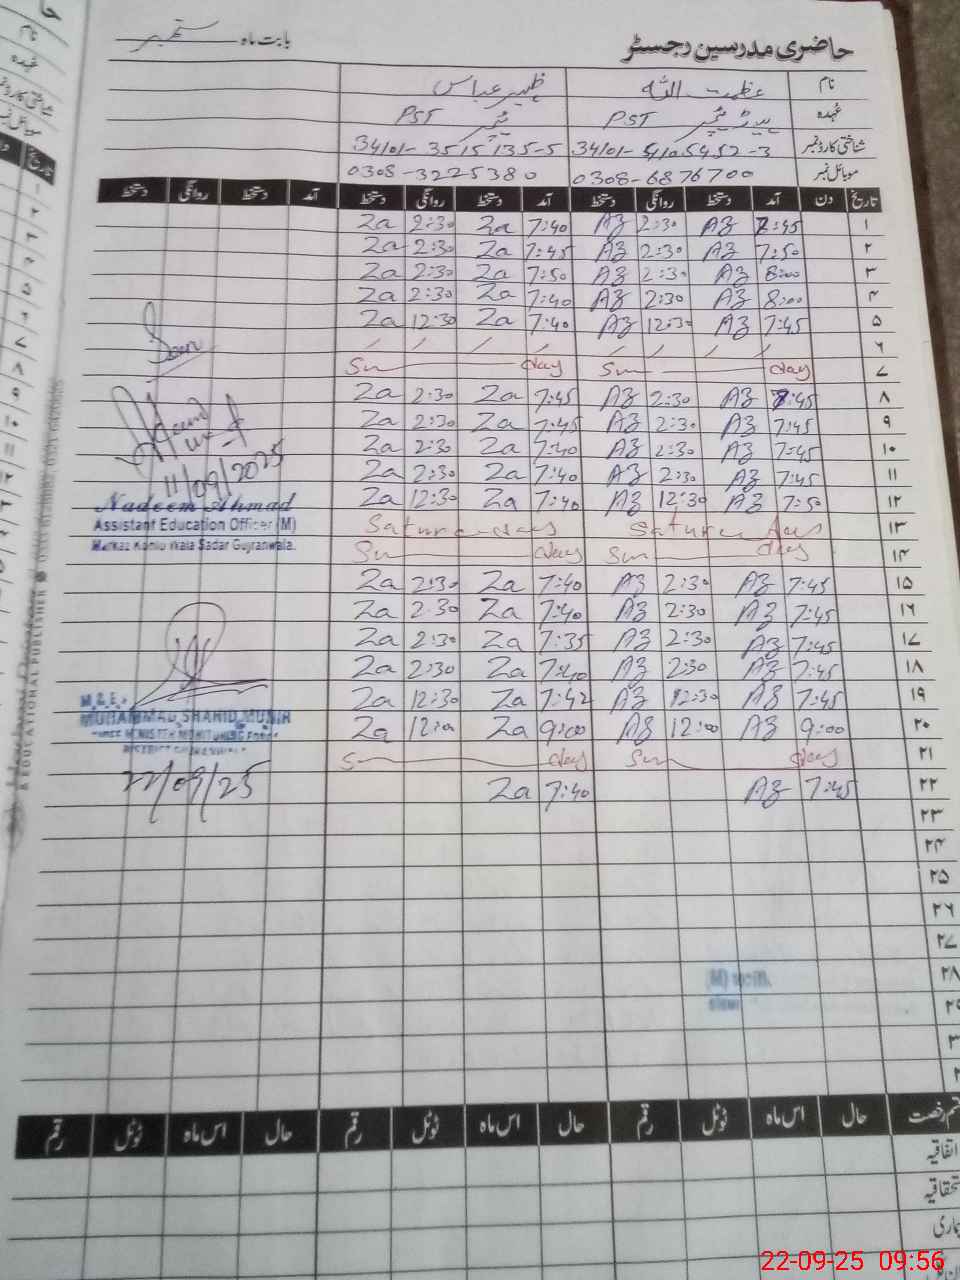 حاضری مدرسین رجسٹر
بابت ماہ ستمبر
نام عظمت اللہ ظہیر عباس
عہدہ ہیڈ ٹیچر PST ٹیچر PST
شناختی کارڈ نمبر 34101-5105452-3 34101-3515135-5
موبائل نمبر 0308-6876700 0308-3225380
تاریخ دن آمد دستخط روانگی دستخط آمد دستخط روانگی دستخط آمد دستخط روانگی دستخط
۱ 7:45 AZ 2:30 AZ 7:40 Za 2:30 Za
۲ 7:50 AZ 2:30 AZ 7:45 Za 2:30 Za
۳ 8:00 AZ 2:30 AZ 7:50 Za 2:30 Za
۴ 8:00 AZ 2:30 AZ 7:40 Za 2:30 Za
۵ 7:45 AZ 12:30 AZ 7:40 Za 12:30 Za
۶
۷ Sunday Sunday
۸ 7:45 AZ 2:30 AZ 7:45 Za 2:30 Za
۹ 7:45 AZ 2:30 AZ 7:45 Za 2:30 Za
۱۰ 7:45 AZ 2:30 AZ 7:40 Za 2:30 Za
۱۱ 7:45 AZ 2:30 AZ 7:40 Za 2:30 Za
۱۲ 7:50 AZ 12:30 AZ 7:40 Za 12:30 Za
۱۳ Saturday Saturday
۱۴ Sunday Sunday
۱۵ 7:45 AZ 2:30 AZ 7:40 Za 2:30 Za
۱۶ 7:45 AZ 2:30 AZ 7:40 Za 2:30 Za
۱۷ 7:45 AZ 2:30 AZ 7:35 Za 2:30 Za
۱۸ 7:45 AZ 2:30 AZ 7:40 Za 2:30 Za
۱۹ 7:45 AZ 12:30 AZ 7:42 Za 12:30 Za
۲۰ 9:00 AZ 12:00 AZ 9:00 Za 12:00 Za
۲۱ Sunday Sunday
۲۲ 7:45 AZ 7:40 Za
۲۳
۲۴
۲۵
۲۶
۲۷
۲۸
11/09/2025
Nadeem Ahmad
Assistant Education Officer (M)
Markaz Wala Sadar Gujranwala.
M.& E.A
MUHAMMAD SHAHID MUNIR
22/09/25
EDUCATIONAL PUBLISHER
حال اس ماہ ٹوٹل رقم حال اس ماہ ٹوٹل رقم حال اس ماہ ٹوٹل رقم
اتفاقیہ
22-09-25 09:56